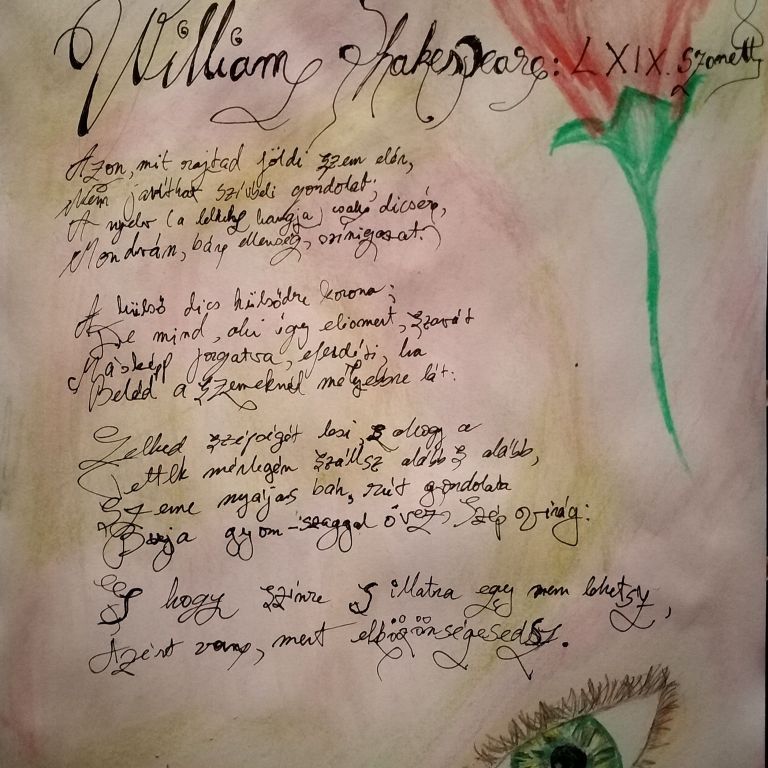 William Shakespeare: LXIX. Szonett
Azon, mit rajtad földi szem elér,
Nem javíthat szívbéli gondolat;
A nyelv (a lelkek hangja) csak dicsér,
Mondván, bár ellenség, színigazat.
A külső dics külsődre korona;
De mind, aki így elismert, szavát
Másképp forgatva, elferdíti, ha
Beléd a szemeknél mélyebbre lát:
Lelked szépségét lesi, s ahogy a
Tettek mérlegén szállsz alább s alább,
Szeme nyájas bár, rút gondolata
Burja gyom-szaggal övez, szép virág:
S hogy színre s illatra egy nem lehetsz,
Azért van, mert elközönségesedsz.